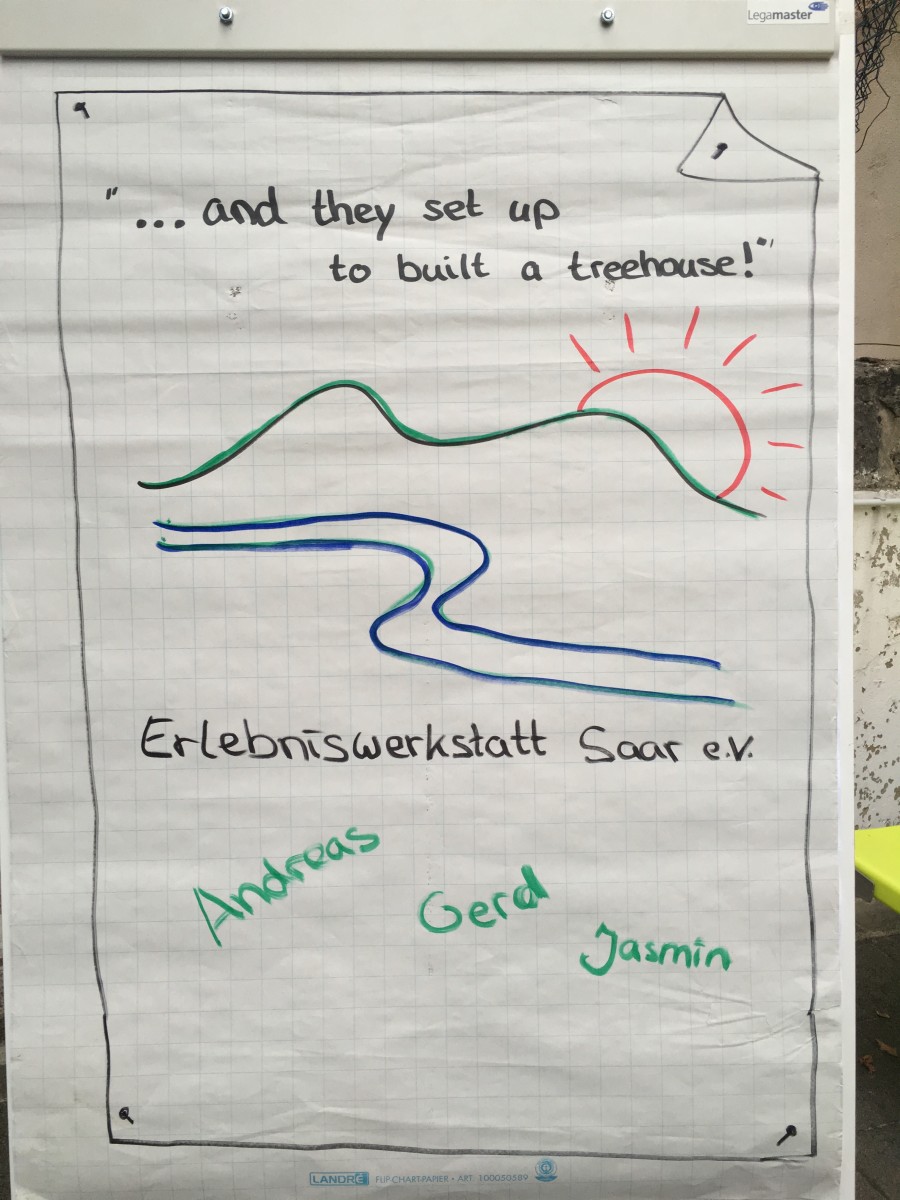 Legamaster
"... and they set up
to built a treehouse!"
Erlebniswerkstatt Saar e.V.
Andreas
Gerd
Jasmin
LANDRÉ FLIP-CHART-PAPIER • ART. 100050589